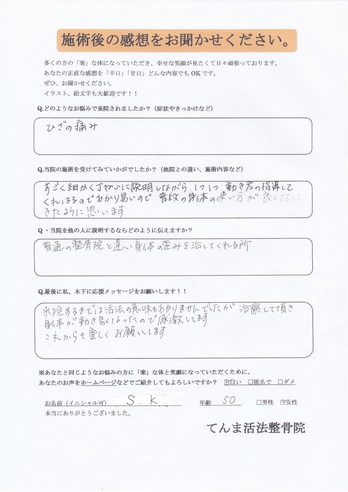 施術後の感想をお聞かせください。
多くの方の「楽」な体になっていただき、幸せな笑顔が見たくて日々頑張っております。
あなたの正直な感想を「辛口」「甘口」どんな内容でもOKです。
ぜひ、お聞かせください。
イラスト、絵文字も大歓迎です！！
Q.どのようなお悩みで来院されましたか？（症状やきっかけなど）
ひざの痛み
Q.当院の施術を受けてみていかがでしたか？（他院との違い、施術内容など）
すごく細かく丁寧に説明しながら、1つ1つ動き方の指導して
くれるのでわかり易いので普段の身体の使い方が良くなって
きたように思います
Q・当院を他の人に説明するならどのように伝えますか？
普通の整骨院と違い身体の歪みを治してくれる所
Q.最後に私、木下に応援メッセージをお願いします！！
来院するまでは活法の意味もわかりませんでしたが 治療して頂き
身体が動き易くなったので感激してます
これからも宜しくお願いします
※あなたと同じようなお悩みの方に「楽」な体と笑顔になっていただくために、
あなたのお声をホームページなどでご紹介してもよろしいですか？ ☑はい □匿名で □ダメ
お名前（イニシャル可） S.K 年齢 50 □男性 ☑女性
本当にありがとうございました。
てんま活法整骨院